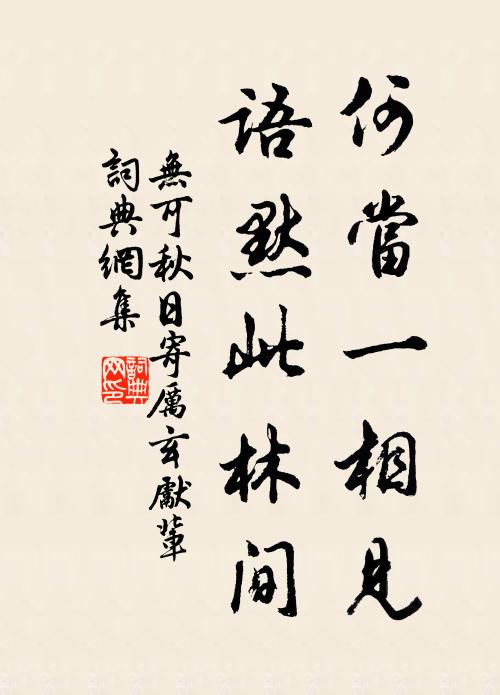 何當一相見
語默此林間
無可秋日寄厲玄獻輩
詞典網集
詞典网印